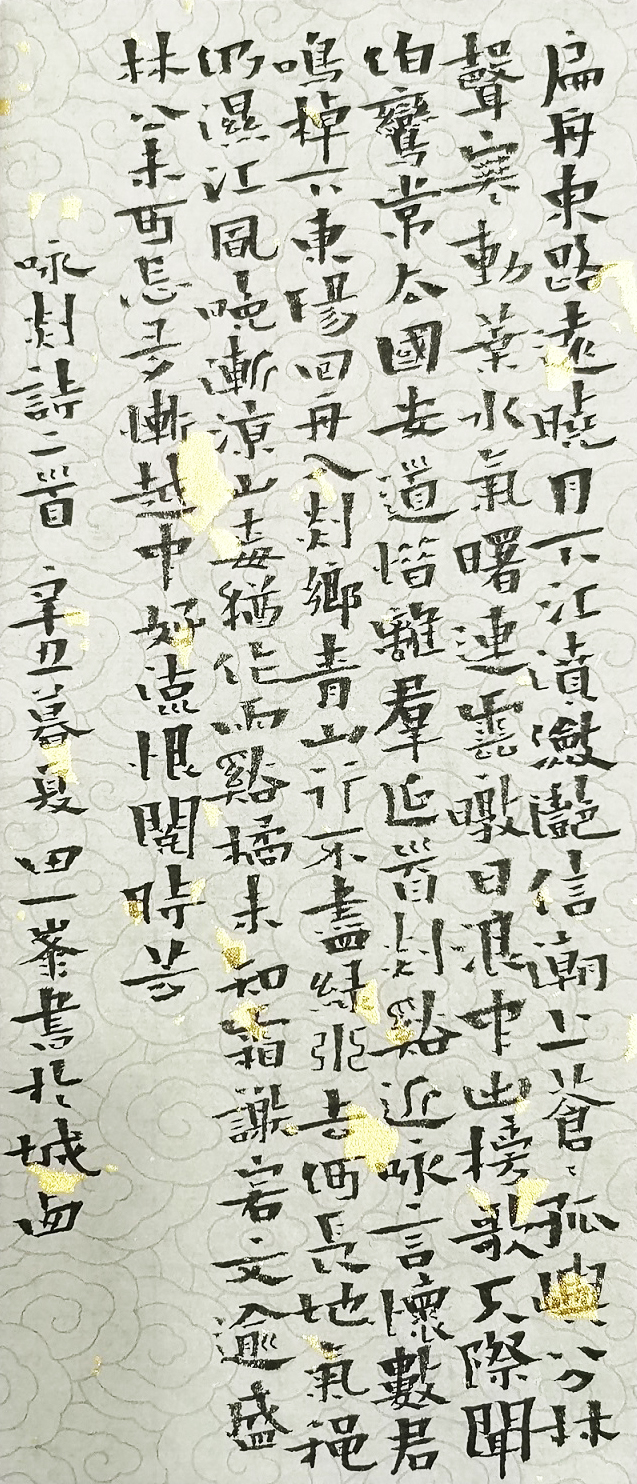 扁舟東路遠曉月下江濆瀲灧信潮上蒼〻孤嶼分林
聲寒動葉水氣曙連雲暾日浪中出搒歌天際聞
伯鸞常去國安道惜離羣延首剡谿近咏言懷數君
鳴棹下東陽回舟入剡鄉青山行不盡綠水去何長地氣穐
仍濕江風晚漸涼山梅猶作雨谿橘未知霜謝客文逾盛
林公未可忘多慚越中好流恨閱時芳
咏剡詩二首 辛丑暮夏 田一峯書於城西